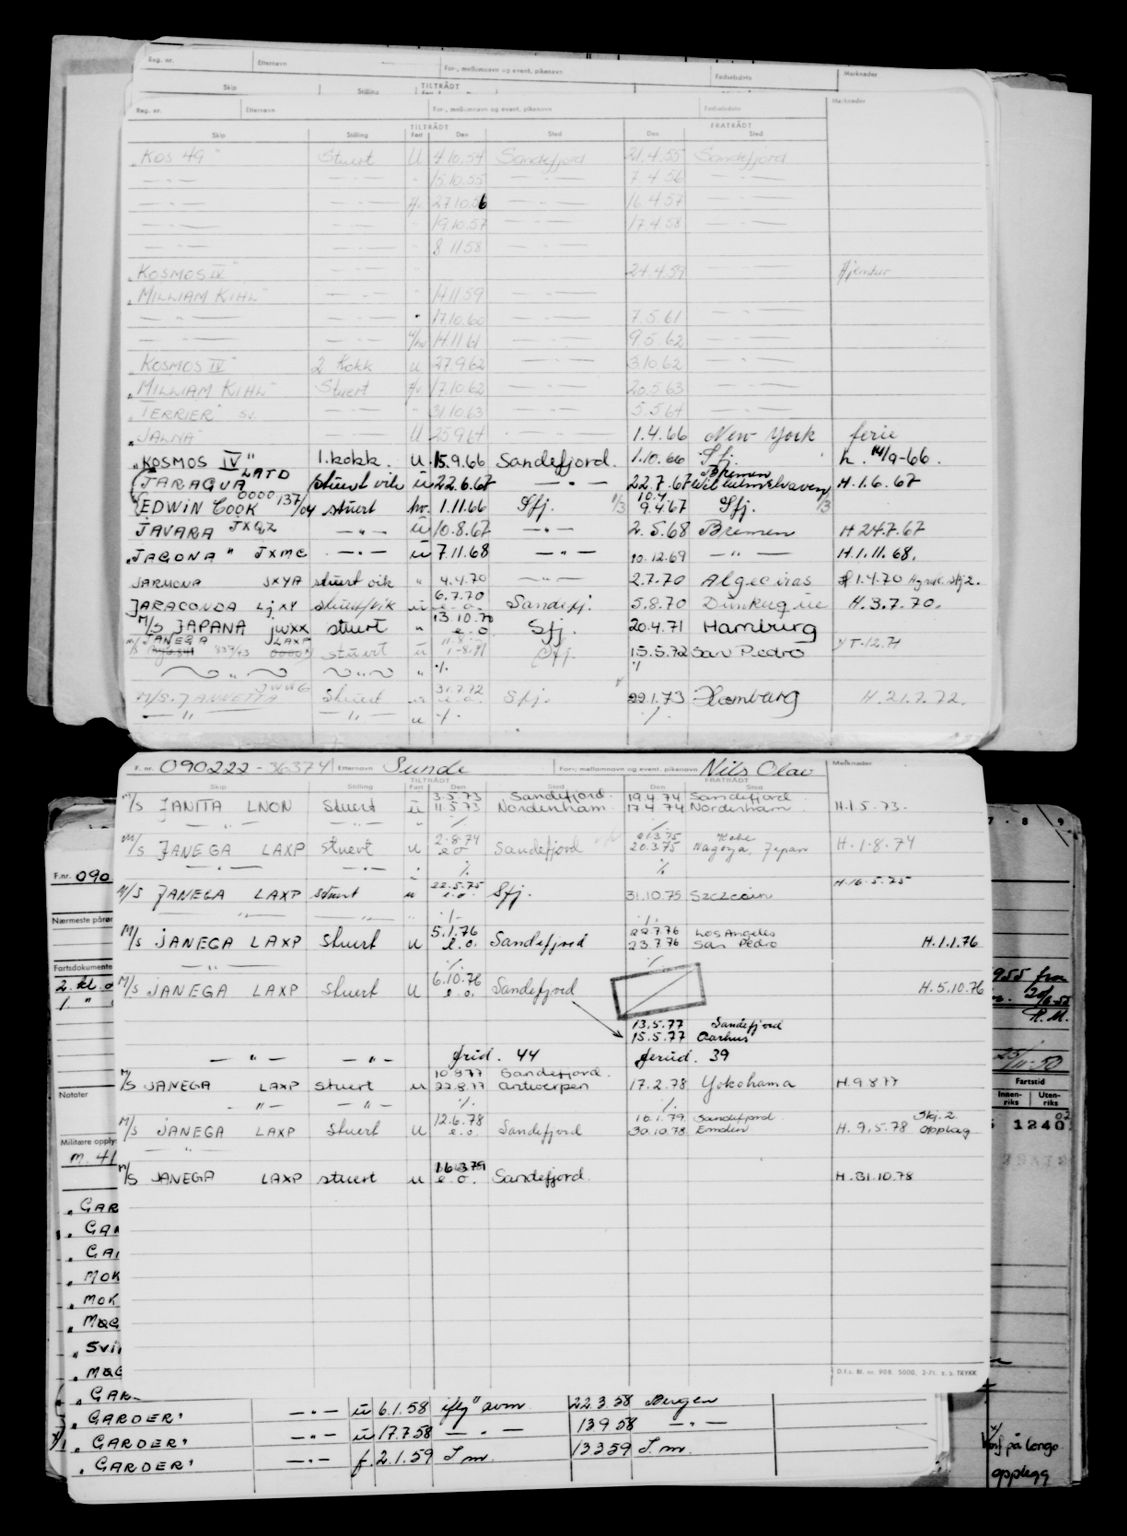 Reg. nr. Etternavn For-, mellomnavn og event. pikenavn Fødselsdato Merknader
Skip Stilling TILTRÅDT
Reg. nr. Etternavn For-, mellomnavn og event. pikenavn Fødselsdato Merknader
TILTRÅDT FRATRÅDT
Skip Stilling Fart Den Sted Den Sted
"KOS 49" Stuert U 4.10.54 Sandefjord 21.4.55 Sandefjord
— " — — " — " 15.10.55 — " — 7.4.56 — " —
— " — — " — 27.10.56 — " — 16.4.57 — " —
— " — — " — 19.10.57 — " — 17.4.58 — " —
— " — — " — 8.11.58 — " —
"KOSMOS IV" — " — 24.4.59 — " —
"WILLIAM KIHL" — " — 14.11.59 — " —
— " — — " — " 17.10.60 — " — 7.5.61 — " —
— " — — " — 14.11.61 — " — 9.5.62 — " —
"KOSMOS IV" 2 Kokk u 27.9.62 — " — 3.10.62 — " —
"WILLIAM KIHL" Stuert 17.10.62 — " — 20.5.63 — " —
"TERRIER" — " — 31.10.63 — " — 5.5.64 — " —
"JALNA" — " — U 25.9.64 — " — 1.4.66 New York ferie
"KOSMOS IV" 1. kokk. u 15.9.66 Sandefjord. 1.10.66 Sfj. h. 14/9-66.
JARAGUA LATD stuert vik ü 22.6.67 — " — 22.7.67 Bremen Wilhelmshaven H.1.6.67
EDWIN COOK 0000 137/04 stuert hv. 1.11.66 Sfj. 1/3 10.4 9.4.67 Sfj. 1/3
JAVARA JXQZ — " — ü 10.8.67 — " — 2.5.68 Bremen H 24.7.67
"JAGONA" JXMC — " — ü 7.11.68 — " — 10.12.69 — " — H.1.11.68.
JARMONA JXYA stuert vik " 4.4.70 — " — 2.7.70 Algeciras 1.4.70
JARACONDA LJXY stuert/vik ü 6.7.70 e.o. Sandefj. 5.8.70 Dunkuque H.3.7.70.
M/S JAPANA JWXX stuert " 13.10.70 e.o Sfj. 20.4.71 Hamburg
M/S JANEGA LAXP 839/43 stuert ü Sfj. 15.5.72 San Pedro
" " " ·/. ·/.
M/S. JANNETTA JWUG Stuert ü 31.7.72 e.o. Sfj. 22.1.73 Hamburg H.21.7.72.
— " — — " — u ·/. ·/.
F. nr. 090222-36374 Etternavn Sunde For-, mellomnavn og event. pikenavn Nils Olav Merknader
TILTRÅDT FRATRÅDT
Skip Stilling Fart Den Sted Den Sted
M/S JANITA LNON stuert ü 3.5.73 Sandefjord. 19.4.74 Sandefjord
11.5.73 Nordenham 17.4.74 Nordenham H.1.5.73.
— " — — " — ·/. ·/.
M/S JANEGA LAXP stuert u 2.8.74 e.o Sandefjord 21.3.75 Kobe
20.3.75 Nagoya, Japan H.1.8.74
— " — ·/. ·/.
M/S JANEGA LAXP stuert u 22.5.75 e.o. Sfj. 31.10.75 Szczcein H.16.5.75
— " — — " — ·/. ·/.
M/S JANEGA LAXP stuert u 5.1.76 e.o. Sandefjord 22.7.76 Los Angeles
23.7.76 San Pedro H.1.1.76
— " — ·/. ·/.
M/S JANEGA LAXP stuert u 6.10.76 e.o. Sandefjord H.5.10.76
13.5.77 Sandefjord
15.5.77 Aarhus
— " — — " — frid. 44 feried. 39
M/S JANEGA LAXP stuert u 10.8.77 Sandefjord.
22.8.77 Antwerpen 17.2.78 Yokohama H.9.8.77
— " — — " — ·/. ·/.
M/S JANEGA LAXP stuert u 12.6.78 e.o. Sandefjord 16.1.79 Sandefjord
30.10.78 Emden H. 9.5.78 Skj. 2. Opplag
— " —
M/S JANEGA LAXP stuert u 16.3.79 e.o. Sandefjord. H.31.10.78
D.f.s. Bl. nr. 908. 5000. 2-71. E.S. TRYKK
7 - 8 - 9
F.nr. 090
Nærmeste pårør
Fartsdokumente
2. kl. 
1. "
Notater
Militære opply
m. 41
955 fra
20/6-52
H.M.
25/11-50
Fartstid
Innenriks Utenriks
1240
"GAR
"GAR
"GA
"MOK
"MOK
"MOS
"SVI
"MOS
"GAR
"GARDER" — " — ü 6.1.58 22.3.58 Bergen
"GARDER" — " — ü 17.7.58 — " — 13.9.58 — " —
"GARDER" — " — f. 2.1.59 S.m. 13.3.59 S.m.
på Longo
opplegg